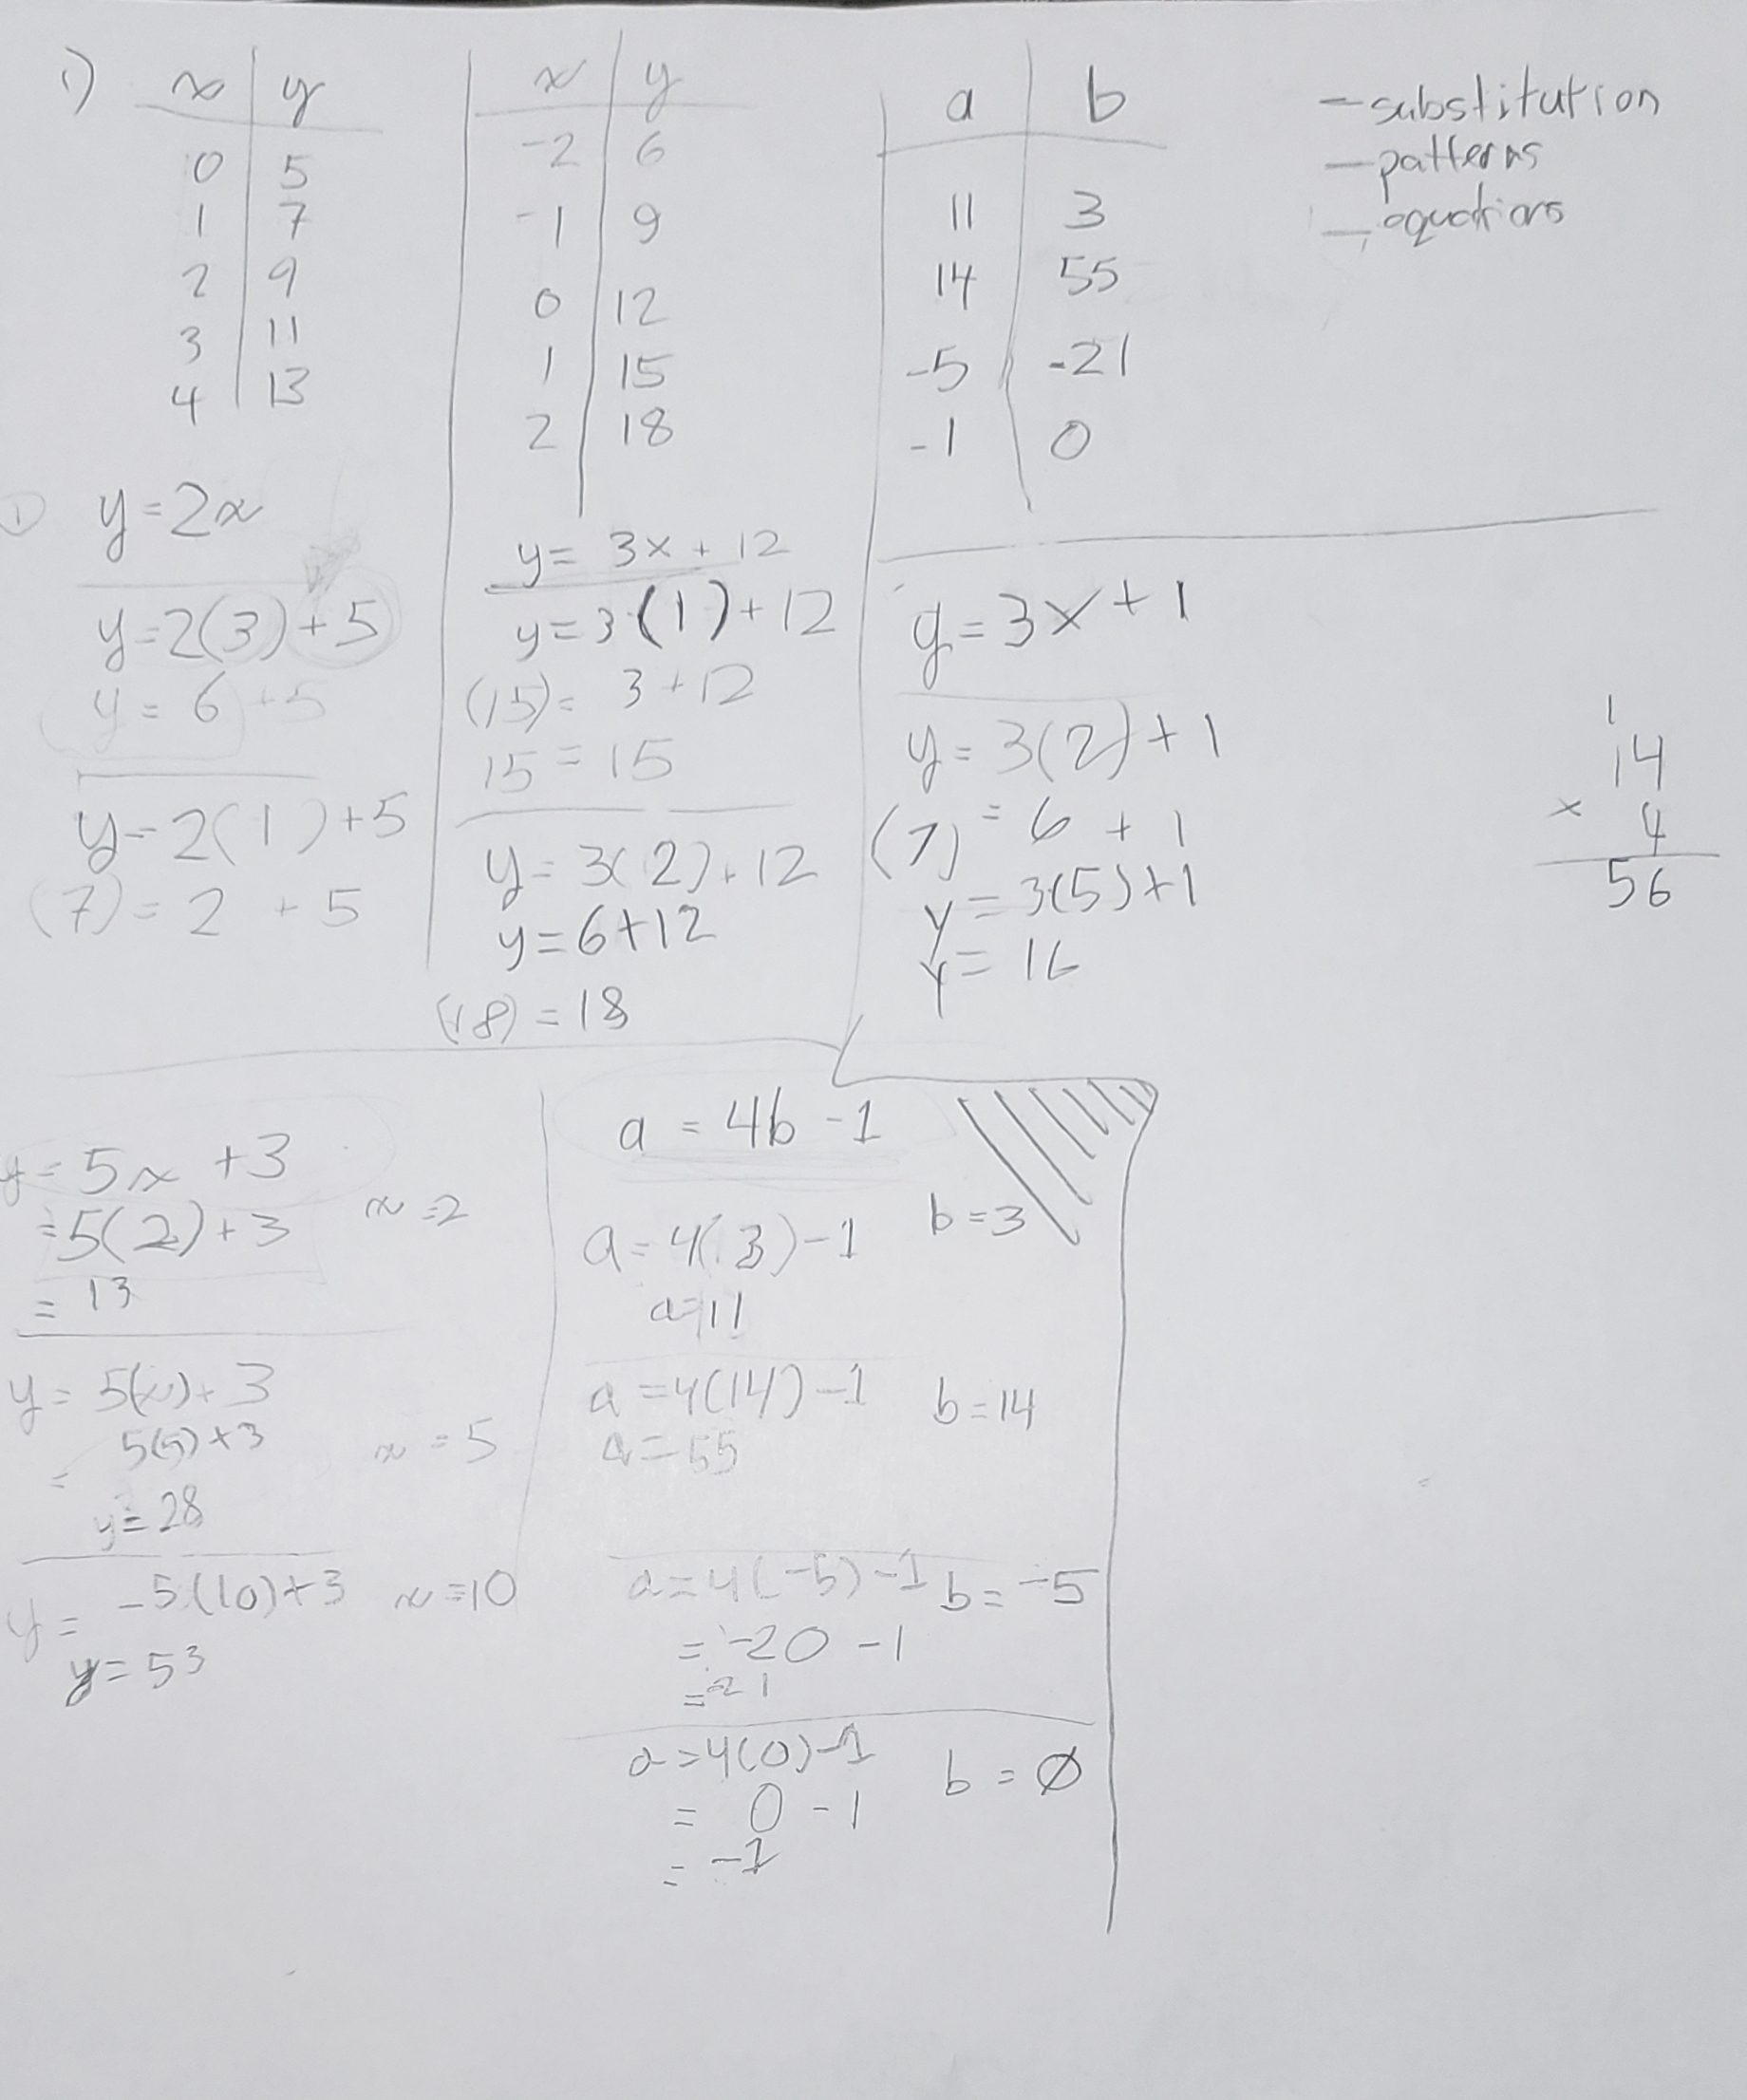 1)
x | y
0 | 5
1 | 7
2 | 9
3 | 11
4 | 13
x | y
-2 | 6
-1 | 9
0 | 12
1 | 15
2 | 18
a | b
11 | 3
14 | 55
-5 | -21
-1 | 0
- substitution
- patterns
- equations
1 y = 2x
y = 2(3) + 5
y = 6 + 5
y = 2(1) + 5
(7) = 2 + 5
y = 3x + 12
y = 3(1) + 12
(15) = 3 + 12
15 = 15
y = 3(2) + 12
y = 6 + 12
(18) = 18
y = 3x + 1
y = 3(2) + 1
(7) = 6 + 1
y = 3(5) + 1
y = 16
1
14
× 4
56
y = 5x + 3
= 5(2) + 3 x = 2
= 13
y = 5(x) + 3
= 5(5) + 3 x = 5
y = 28
y = -5(10) + 3 x = 10
y = 53
a = 4b - 1
a = 4(3) - 1 b = 3
a = 11
a = 4(14) - 1 b = 14
a = 55
a = 4(-5) - 1 b = -5
= -20 - 1
= -21
a = 4(0) - 1 b = Ø
= 0 - 1
= -1